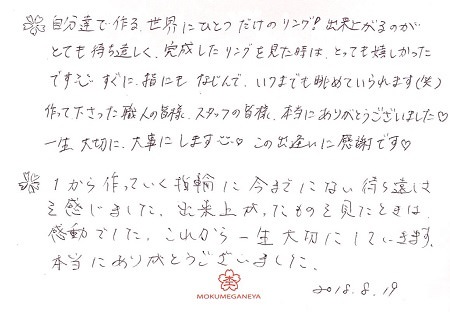 自分達で作る、世界にひとつだけのリング!出来上がるのが
とても待ち遠しく、完成したリングを見た時は、とっても嬉しかった
です すぐに、指にもなじんで、いつまでも眺めていられます(笑)
作って下さった職人の皆様、スタッフの皆様、本当にありがとうございました♡
一生、大切に、大事にします♡ この出逢いに感謝です♡
1から作っていく指輪に今までにない待ち遠しさ
を感じました。出来上がったものを見たときは、
感動でした。これから一生大切にしていきます。
本当にありがとうございました。
MOKUMEGANEYA
2018.8.19